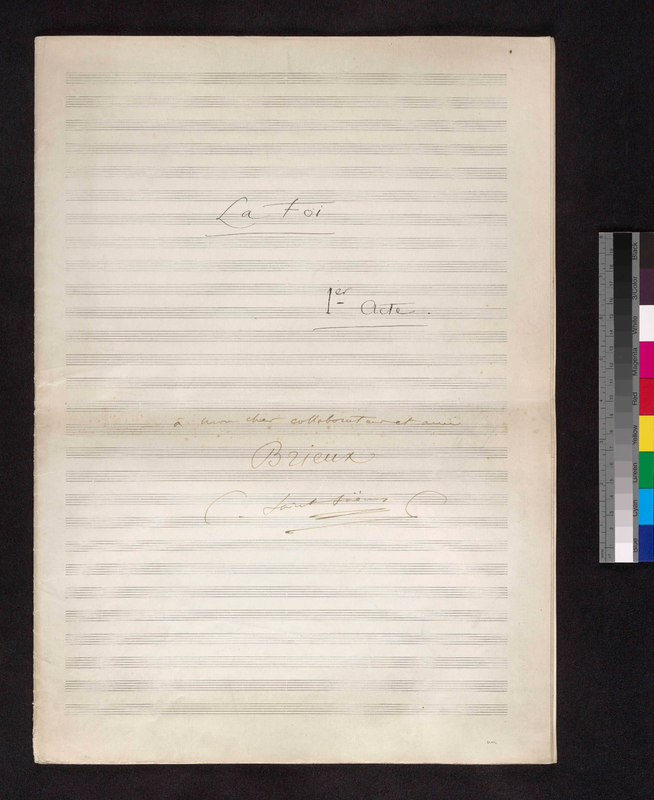 La Foi
1er Acte.
à mon cher collaborateur et ami
Brieux
C. Saint-Saëns
Black
3/Color
White
Magenta
Red
Yellow
Green
Cyan
Blue